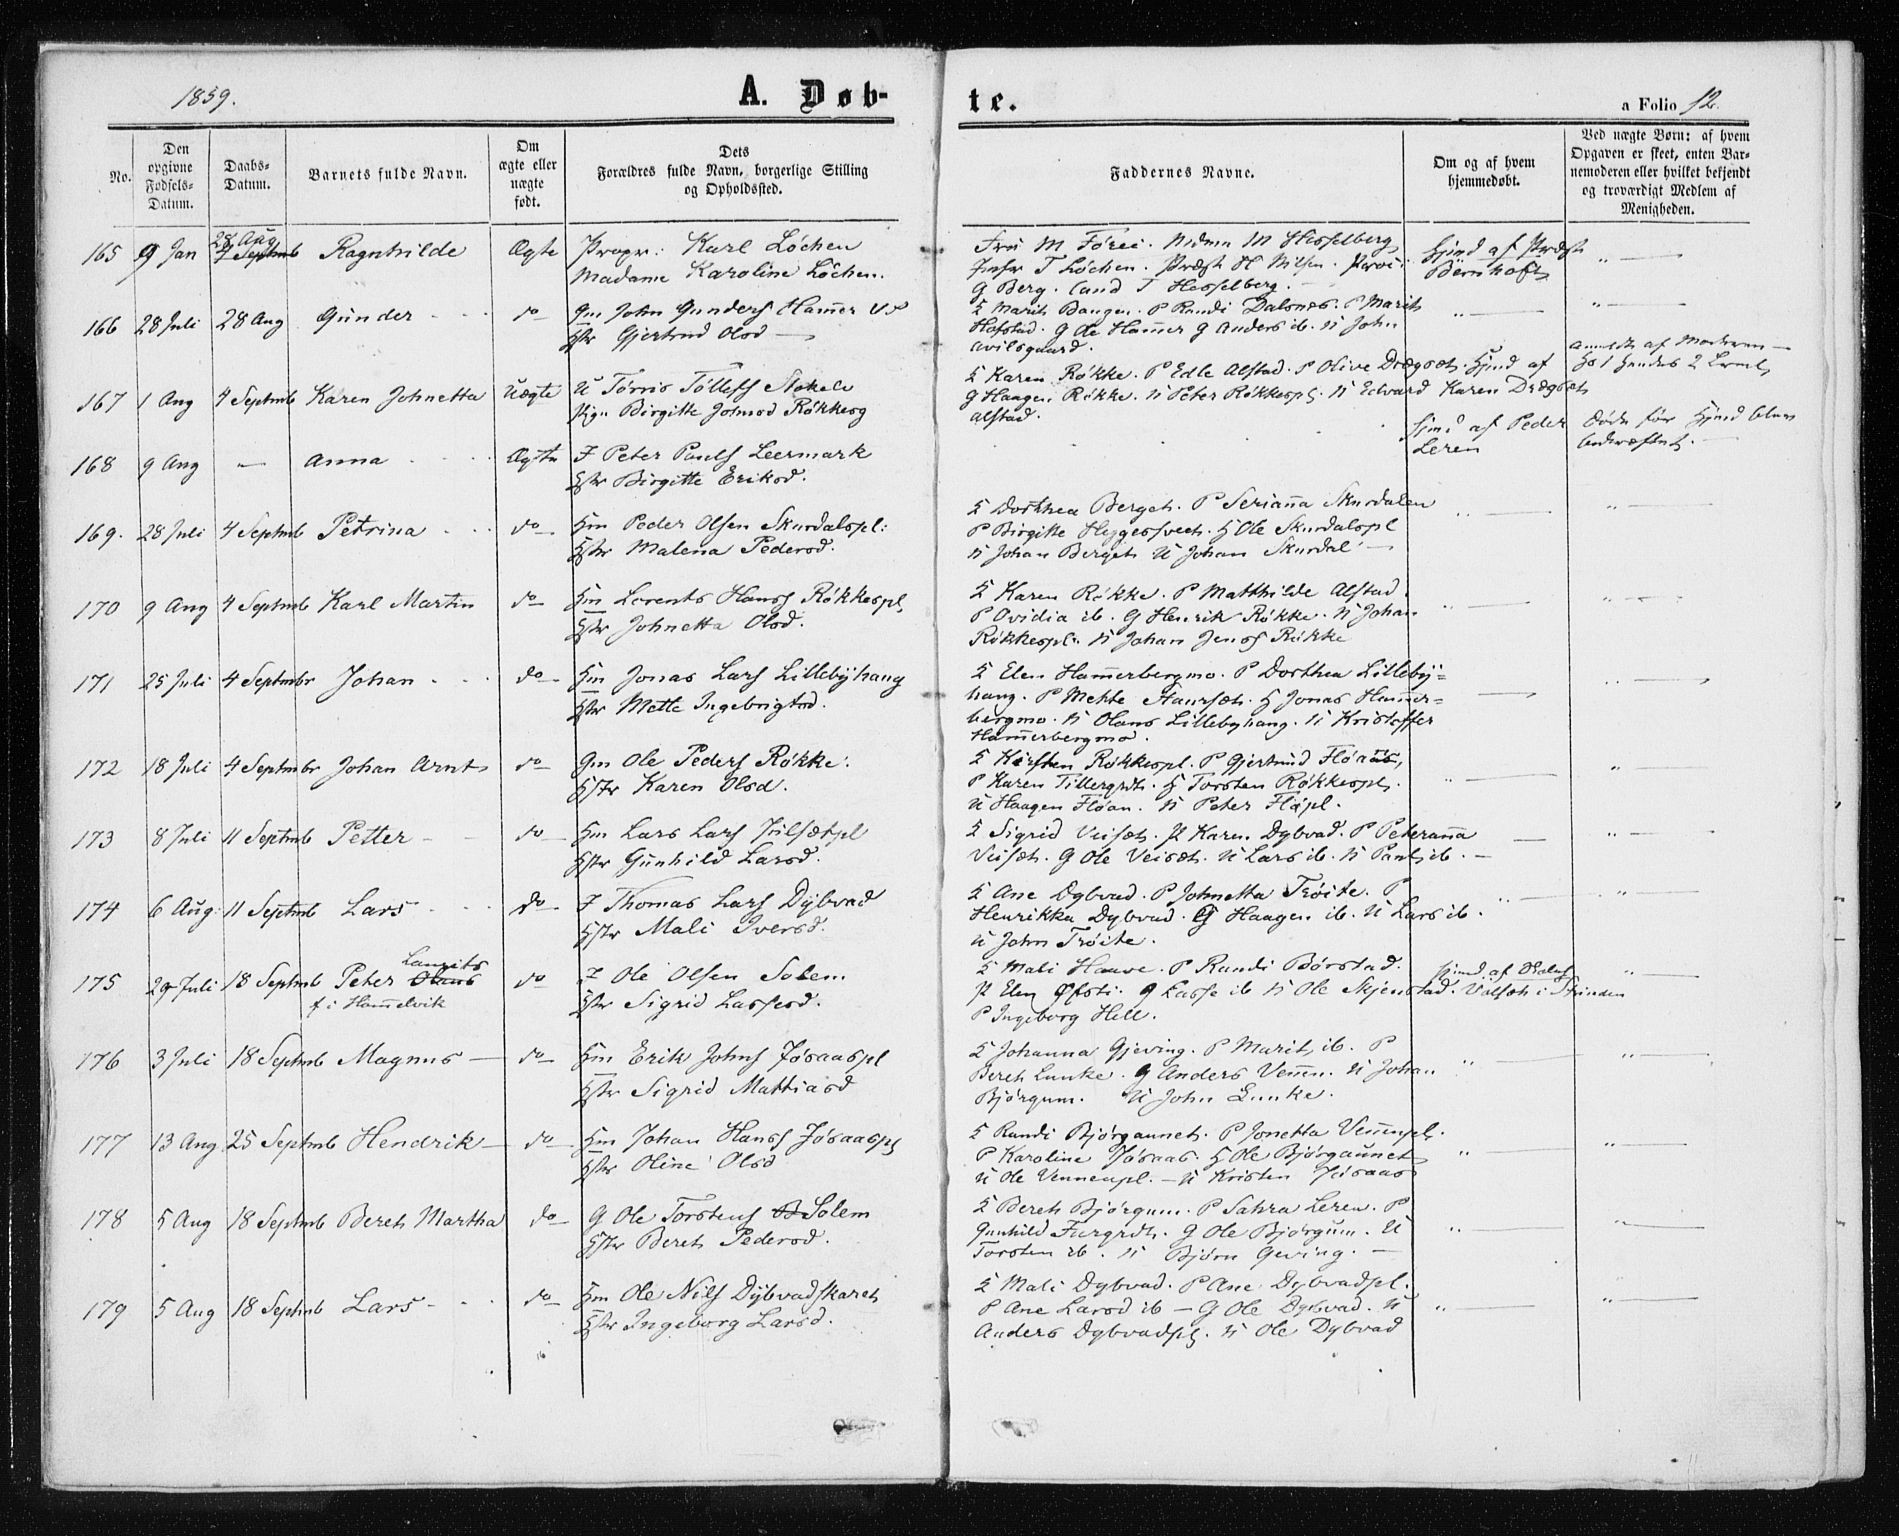 1859.
A. Døb-
te.
a Folio 12.
No.
Den opgivne Fødsels-Datum.
Daabs-Datum.
Barnets fulde Navn.
Om ægte eller uægte født.
Dets Forældres fulde Navn, borgerlige Stilling og Opholdssted.
Faddernes Navne.
Om og af hvem hjemmedøbt.
Ved uægte Børn: af hvem Opgaven er skeet, enten Barnemoderen eller hvilket bekjendt og troværdigt Medlem af Menigheden.
165 9 Jan 28 Aug Ragnhilde Ægte Propr: Karl Løchen
Madame Karoline Løchen.
M Hesselberg
T Løchen. Præst Nilsen.
G Berg. Cand T Hesselberg.
Hjmd af Præst
166 28 Juli 28 Aug Gunder do Gm John Gunders Hammer
Hstr Gjertrud Olsd
K Marit Bangen. P Randi Dalsnes. P Marit
Hofstad. G Ole Hammer G Anders ib. U John
167 1 Aug 4 Septmb Karen Johnetta Uægte U Tørris Tølless Stokke
Pign Birgitte Røkkesg
K Karen Røkke. P Edle Alstad. P Olive Drægset. Hjmd af
G Haagen Røkke. U Peter Røkkespl. U Edvard Karen Drægset
Alstad.
anmeldt af Moderen
168 9 Aug — Anna Ægte I Peter Pauls Leermark
Hstr Birgitte Eriksd.
Hjmd af Peder
Leren
Døde før Hjmd blev
bekræftet.
169. 28 Juli 4 Septmb Petrina do Hm Peder Olsen Skurdalspl:
Hstr Malena Pedersd.
K Dorthea Berget. P Serianna Skurdalen
P Birgitte H Ole Skurdalspl
U Johan Berget U Johan Skurdal
170 9 Aug 4 Septmb Karl Martin do Hm Lorents Hanss Røkkespl
Hstr Johnetta Olsd.
K Karen Røkke. P Matthilde Alstad
P Ovidia ib. G Henrik Røkke. U Johan
Røkkespl. U Johan Jenss Røkke
171 25 Juli 4 Septmbr Johan do Hm Jonas Lars Lillebyhaug
Hstr Mette Ingebrigtsd.
K Elen Hammerbergmo. P Dorthea Lilleby-
haug. P Mette H Jonas Hammer-
bergmo. U Olaus Lillebyhaug. U Kristoffer
Hammerbergmo.
172 18 Juli 4 Septmbr Johan Arnt do Gm Ole Peders Røkke.
Hstr Karen Olsd.
K Kirsten Røkkespl. P Gjertrud
P Karen H Torsten Røkkespl.
U Haagen Fløan. U Peter
173 8 Juli 11 Septmb Petter do Hm Lars Lars
Hstr Gunhild Larsd.
K Sigrid Veisæt. P Karen Dybvad. P Peteranna
Veisæt. G Ole Veisæt. U Lars ib. U Paul ib.
174 6 Aug: 11 Septmb Lars do I Thomas Lars Dybvad
Hstr Mali Iversd.
K Ane Dybvad. P Johnetta Trøite. P
Henrikka Dybvad. G Haagen ib. U Lars ib.
U John Trøite.
175 29 Juli 18 Septmb Peter Laurits Olaus
f i Hammelvik
do I Ole Olsen Solem
Hstr Sigrid Lassesd.
K Mali P Randi Børstad.
P Elen Øfsti. G Lasse ib U Ole Skjenstad.
P Ingeborg Hell.
Hjmd af
i Strinden
176 3 Juli 18 Septmb Magnus do Hm Erik Johns Jøsaaspl
Hstr Sigrid Mattiasd
K Johanna Gjeving. P Marit ib. P
Beret Lunke. G Anders U Johan
Bjørgum. U John Lunke.
177 13 Aug 25 Septmb Hendrik do Hm Johan Hanss Jøsaaspl
Hstr Oline Olsd
K Randi Bjørgaunet. P Jonetta
P Karoline Jøsaas. H Ole Bjørgaunet
U Ole U Kristen Jøsaas
178 5 Aug 18 Septmb Beret Martha do G Ole Torstens Solem
Hstr Beret Pedersd.
K Beret Bjørgum. P Sahra Leren. P
Gunhild G Ole Bjørgum. U
Torsten ib. U Bjørn Geving.
179 5 Aug 18 Septmb Lars do Hm Ole Nils Dybvadskaret
Hstr Ingeborg Larsd.
K Mali Dybvad. P Ane Dybvadpl.
P Ane Larsd ib G Ole Dybvad. U
Anders Dybvadpl. U Ole Dybvad